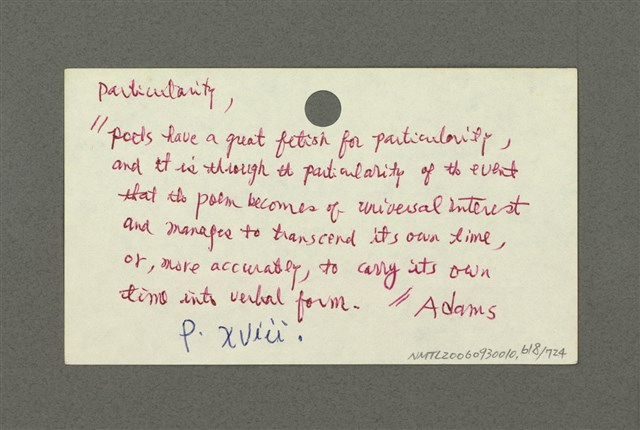 particularity,
"poets have a great fetish for particularity,
and it is through th particularity of th event
that th poem becomes of universal interest
and manages to transcend its own time,
or, more accurately, to carry its own
time into verbal form. " Adams
p. xviii.
NMTL20060930010, 618/724